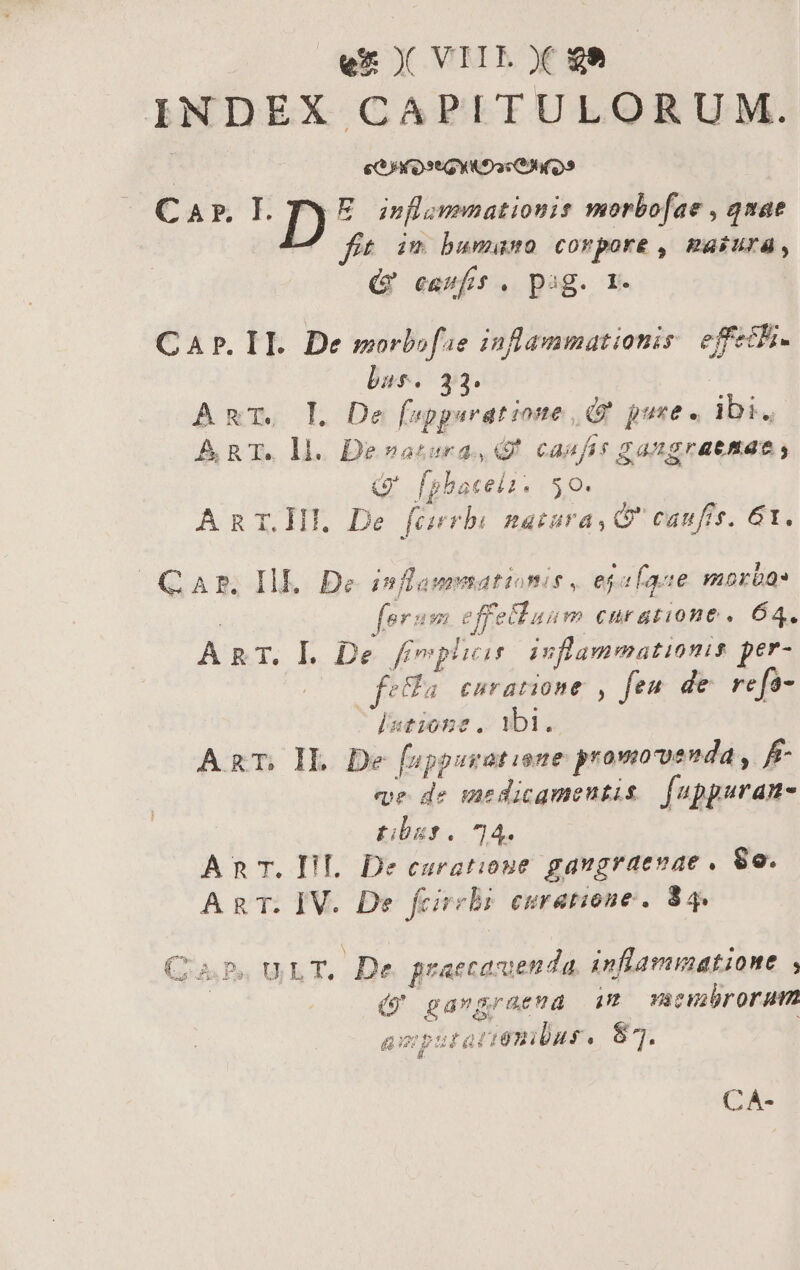 )( VIII. )(
INDEX CAPITULORUM.
CAP. I. DE inflammationis morbosae, quae
fit in humano corpore, natura,
& causis. pag. 1.
CAP. II. De morbosae inflammationis effecti-
bus. 33.
ART. I. De suppuratione, & pure. ibi.
ART. II. De natura, & causis gangraenae,
& sphaceli. 50.
ART. III. De scirrhi natura, & causis. 61.
CAP. III. De inflammationis, ejusque morbo-
sorum effectuum curatione. 64.
ART. I. De simplicis inflammationis per-
fecta curatione, seu de reso-
lutione. ibi.
ART. II. De suppuratione promovenda, si-
ve de medicamentis suppuran-
tibus. 74.
ART. III. De curatione gangraenae. 80.
ART. IV. De scirrhi curatione. 84.
CAP. ULT. De praecavenda inflammatione,
& gangraena in membrorum
amputationibus. 87.
CA-